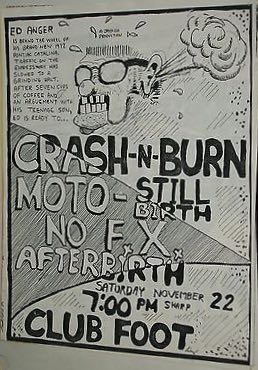 ED ANGER
IS BEHIND THE WHEEL OF
HIS BRAND NEW 1972
PONTIAC CATALINA.
TRAFFIC ON THE
EXPRESSWAY HAS
SLOWED TO A
GRINDING HALT.
AFTER SEVEN CUPS
OF COFFEE AND
AN ARGUEMENT WITH
HIS TEENAGE SON,
ED IS READY TO...
PRODUCTION
CRASH-N-BURN
MOTO-
STILL
BIRTH
NO F.X.
AFTERBIRTH
BIRTH
SATURDAY NOVEMBER 22
7:00 PM SHARP
CLUB FOOT